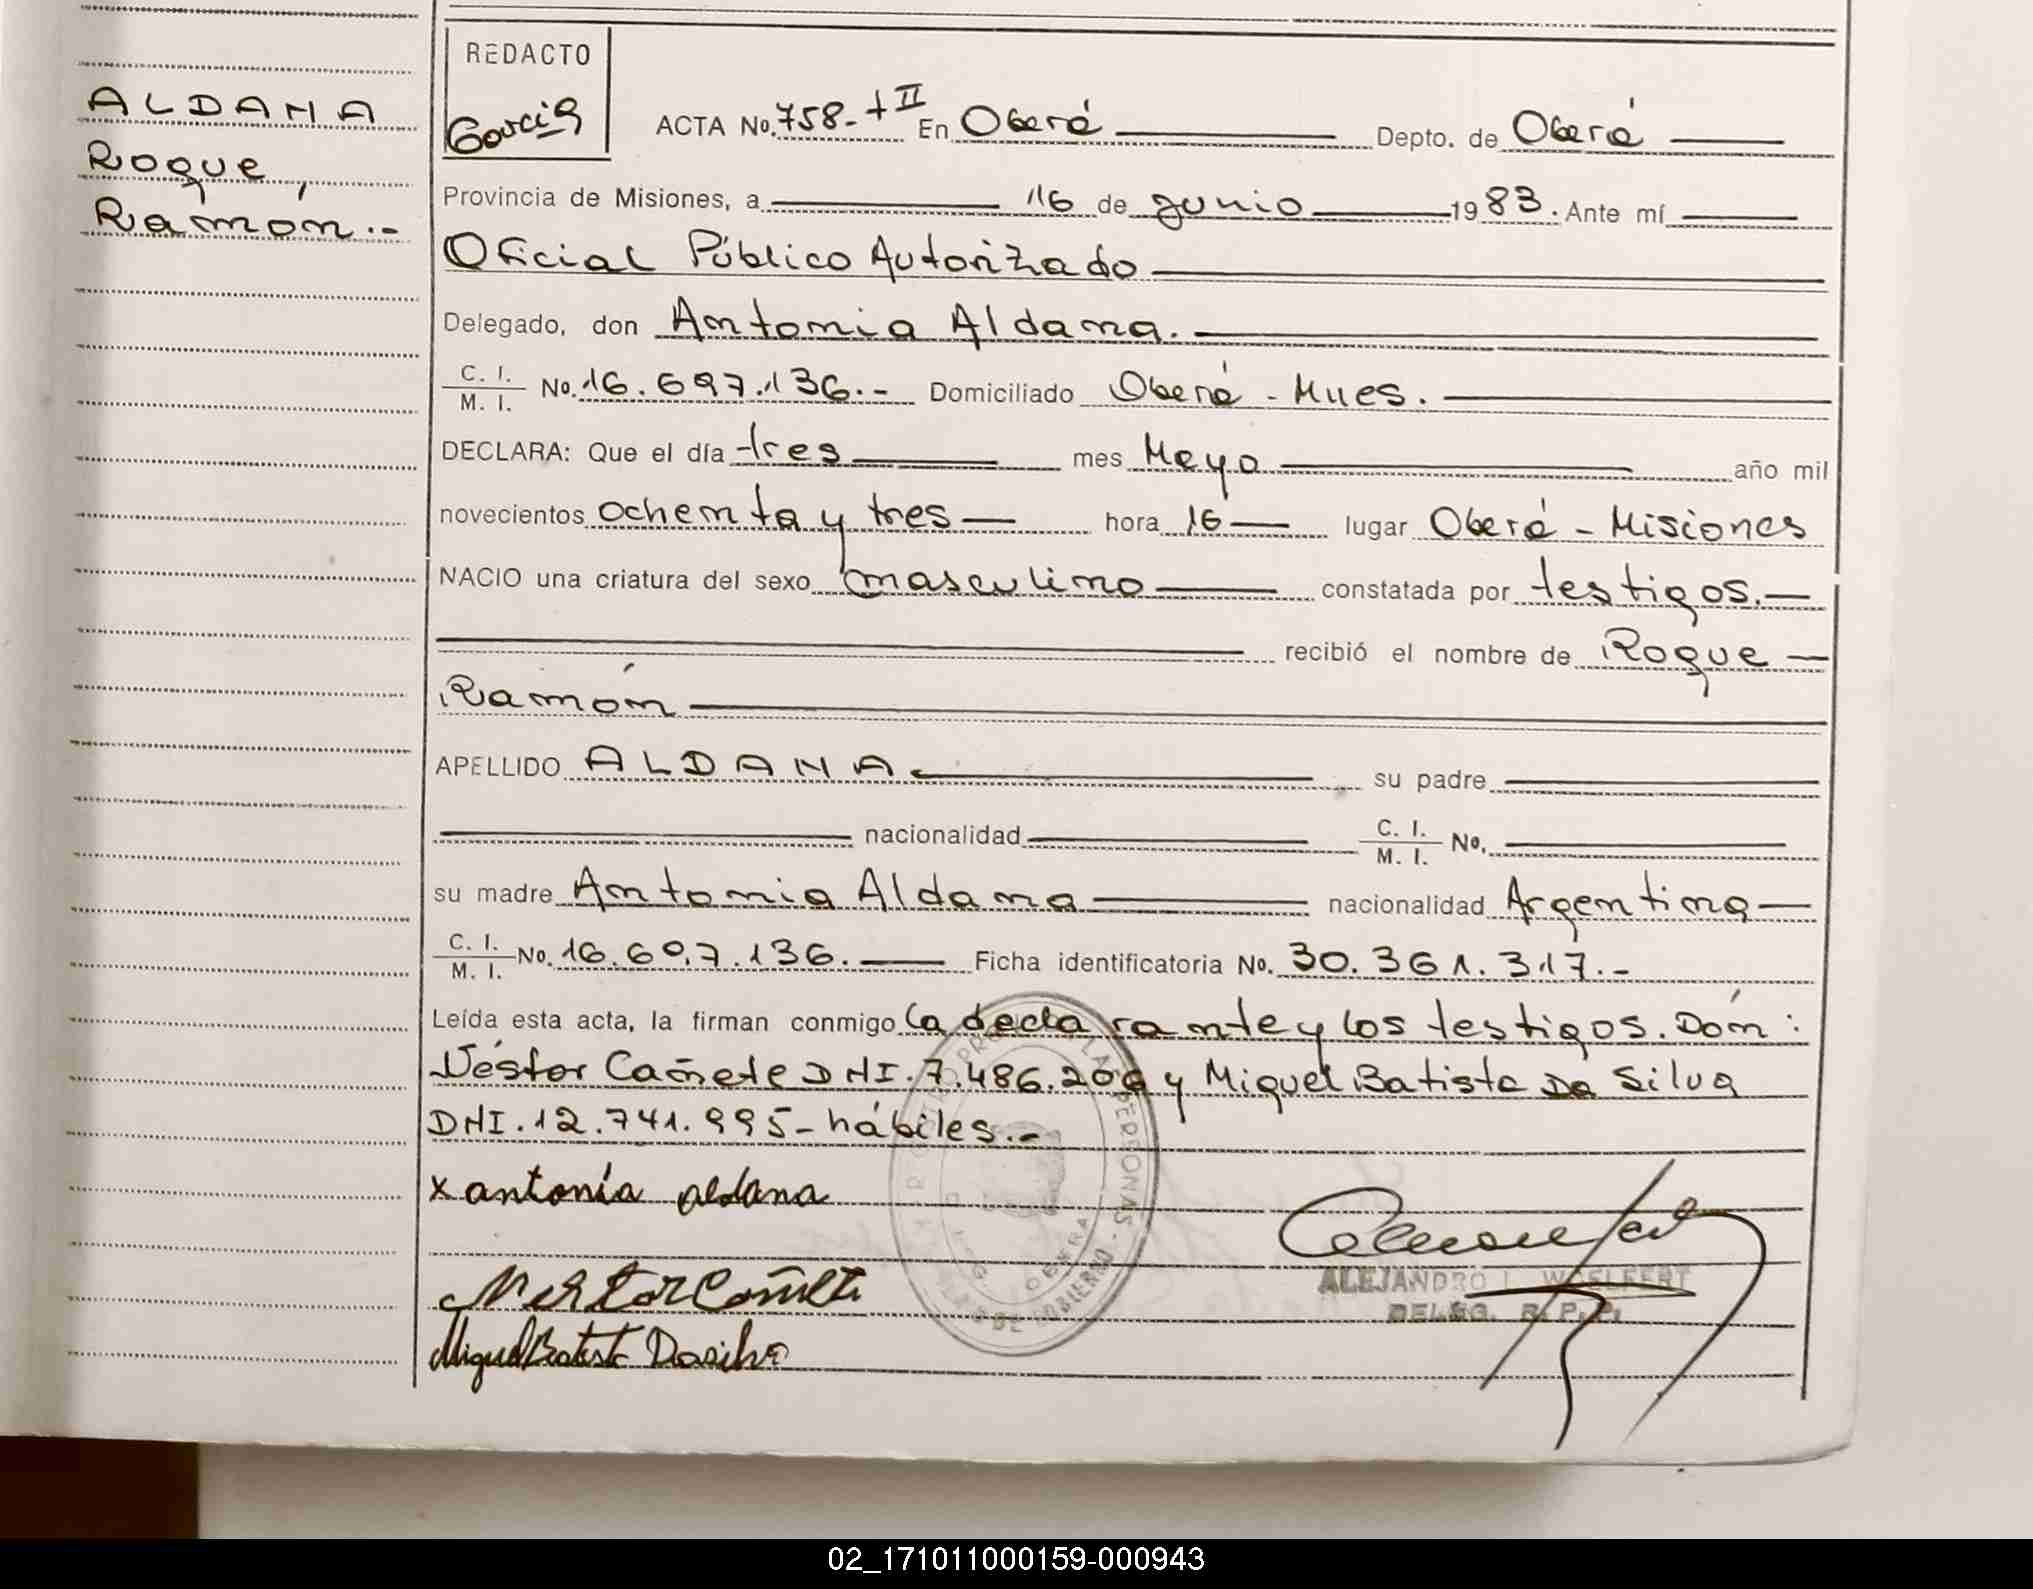 ALDANA
Roque,
Ramón.-
REDACTO
García
ACTA No. 758-tII En Oberá Depto. de Oberá
Provincia de Misiones, a 16 de junio 1983. Ante mí
Oficial Público Autorizado
Delegado, don Antonia Aldana.
C. I. M. I. No. 16.697.136.- Domiciliado Oberá - Mnes.
DECLARA: Que el día tres mes Mayo año mil
novecientos ochenta y tres hora 16 lugar Oberá - Misiones
NACIO una criatura del sexo masculino constatada por testigos.
recibió el nombre de Roque
Ramón
APELLIDO ALDANA su padre
nacionalidad C. I. M. I. No.
su madre Antonia Aldana nacionalidad Argentina
C. I. M. I. No. 16.697.136. Ficha identificatoria No. 30.361.317.-
Leída esta acta, la firman conmigo la declarante y los testigos. Dón:
Néstor Cañete DNI. 7.486.206 y Miguel Batista Da Silva
DNI. 12.741.995 - hábiles.-
x antonia aldana
Nestor Cañete
Miguel Batista Dasilva
ALEJANDRO WOELFERT
DELEG. R. P. P.
LAS PERSONAS -
OBERA
DE GOBIERNO
02_171011000159-000943